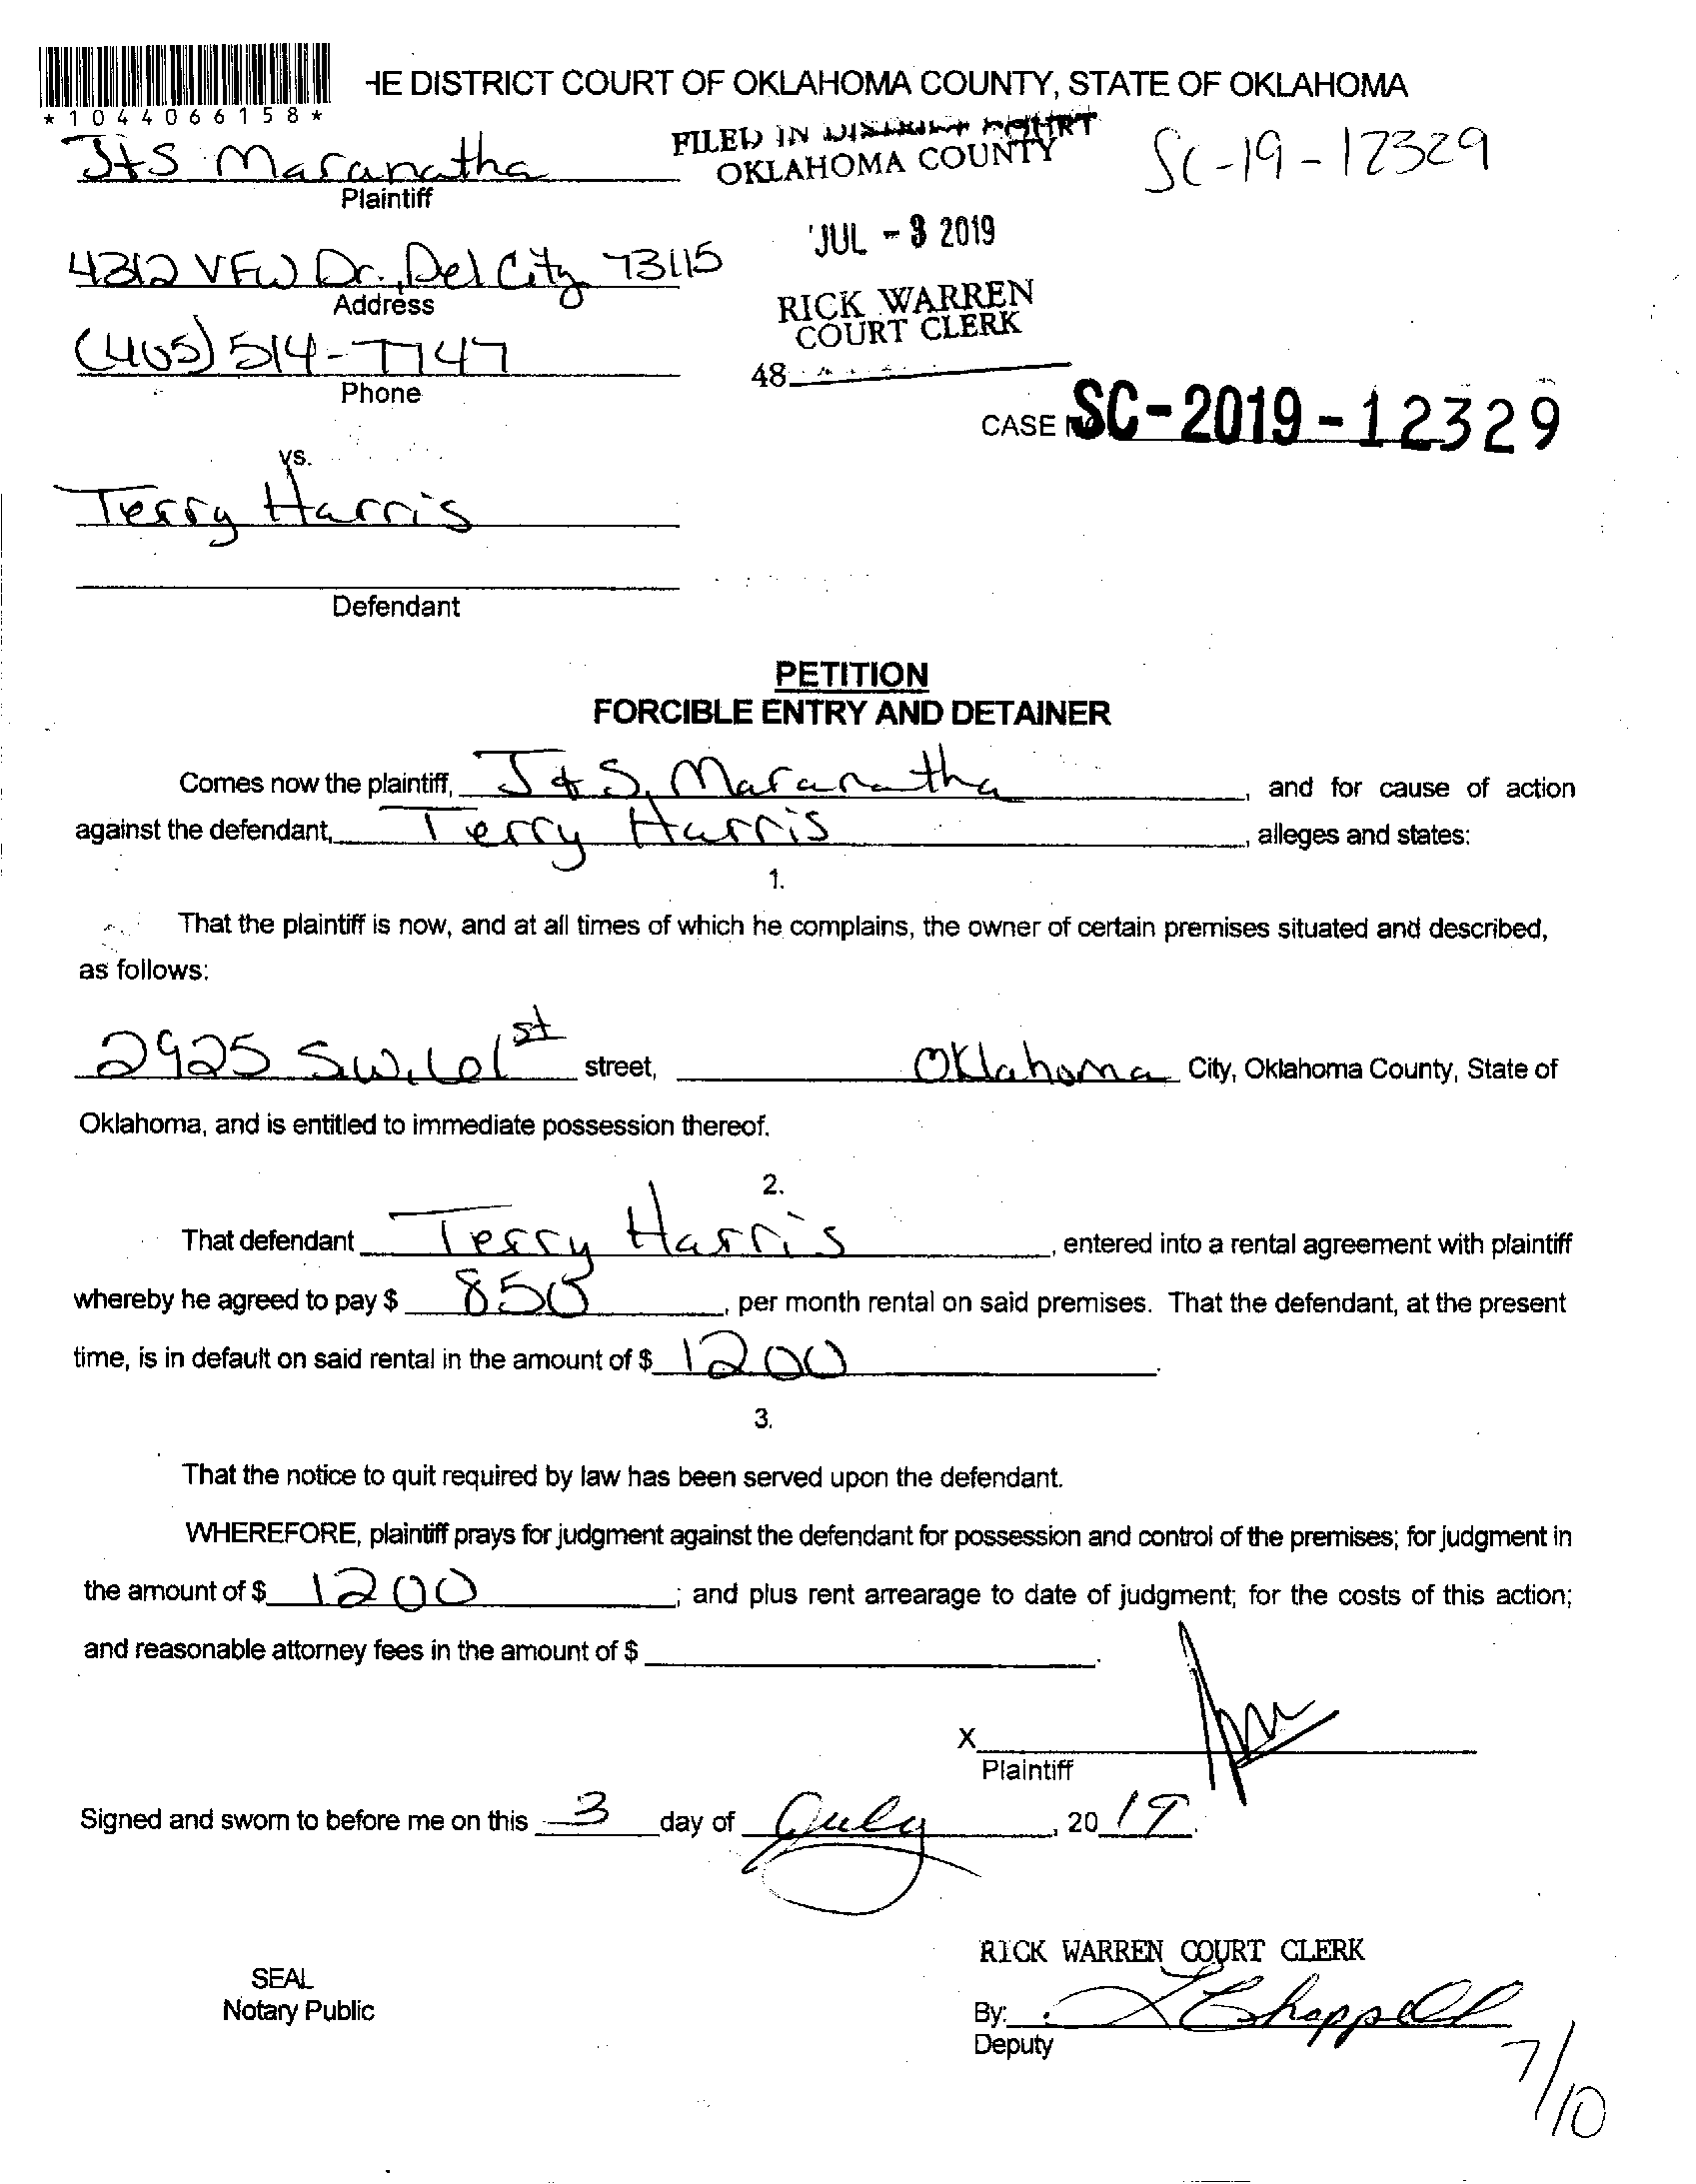 *1044066158*
HE DISTRICT COURT OF OKLAHOMA COUNTY, STATE OF OKLAHOMA
FILED IN DISTRICT COURT
OKLAHOMA COUNTY
SC-19-12329
J+S Maranatha
Plaintiff
JUL - 3 2019
4312 VFW Dr., Del City 73115
Address
RICK WARREN
COURT CLERK
(405) 514-7747
Phone
48
CASE NO. SC-2019-12329
vs.
Terry Harris
Defendant
PETITION
FORCIBLE ENTRY AND DETAINER
Comes now the plaintiff, J & S Maranatha, and for cause of action
against the defendant, Terry Harris, alleges and states:
1.
That the plaintiff is now, and at all times of which he complains, the owner of certain premises situated and described,
as follows:
2925 S.W. 61st street, Oklahoma City, Oklahoma County, State of
Oklahoma, and is entitled to immediate possession thereof.
2.
That defendant Terry Harris, entered into a rental agreement with plaintiff
whereby he agreed to pay $ 850, per month rental on said premises. That the defendant, at the present
time, is in default on said rental in the amount of $ 1200.
3.
That the notice to quit required by law has been served upon the defendant.
WHEREFORE, plaintiff prays for judgment against the defendant for possession and control of the premises; for judgment in
the amount of $ 1200; and plus rent arrearage to date of judgment; for the costs of this action;
and reasonable attorney fees in the amount of $ .
X
Plaintiff
Signed and sworn to before me on this 3 day of July, 2019.
RICK WARREN COURT CLERK
SEAL
Notary Public
By: L Chappell
Deputy
7/10